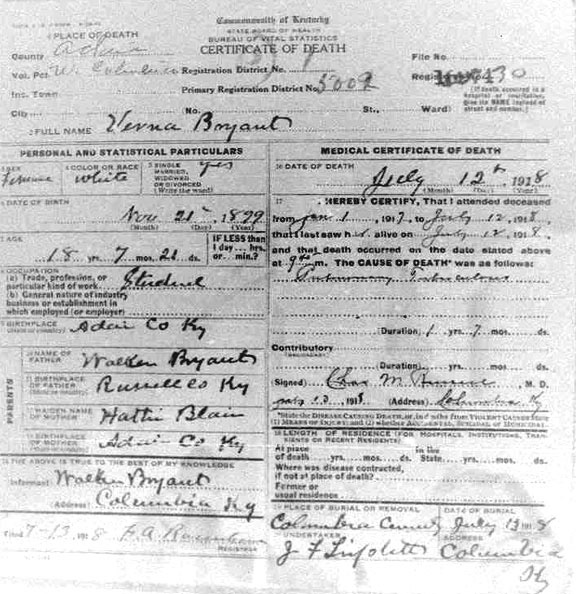 Commonwealth of Kentucky
STATE BOARD OF HEALTH
BUREAU OF VITAL STATISTICS
CERTIFICATE OF DEATH
1 PLACE OF DEATH
County Adair
Vol. Pct. W. Columbia Registration District No.
Inc. Town Primary Registration District No. 5002
City No. St., Ward)
File No.
Registered No. 430
[If death occurred in a hospital or institution, give its NAME instead of street and number.]
2 FULL NAME Verna Bryant
PERSONAL AND STATISTICAL PARTICULARS
3 SEX Female
4 COLOR OR RACE White
5 SINGLE MARRIED, WIDOWED OR DIVORCED (Write the word) yes
6 DATE OF BIRTH
Nov 21 1899
(Month) (Day) (Year)
7 AGE
18 yrs. 7 mos. 21 ds.
IF LESS than 1 day... hrs. or... min.?
8 OCCUPATION
(a) Trade, profession, or particular kind of work Student
(b) General nature of industry business or establishment in which employed (or employer)
9 BIRTHPLACE Adair Co Ky
PARENTS
10 NAME OF FATHER Walker Bryant
11 BIRTHPLACE OF FATHER Russell Co Ky
12 MAIDEN NAME OF MOTHER Hattie Blair
13 BIRTHPLACE OF MOTHER Adair Co Ky
14 THE ABOVE IS TRUE TO THE BEST OF MY KNOWLEDGE
Informant Walker Bryant
Address Columbia Ky
15 Filed 7-13 1918
REGISTRAR
MEDICAL CERTIFICATE OF DEATH
16 DATE OF DEATH
July 12th 1918
(Month) (Day) (Year)
17 I HEREBY CERTIFY, That I attended deceased
from Jan 1, 1917, to July 12, 1918,
that I last saw h alive on July 12, 1918
and that death occurred on the date stated above
at 9 m. The CAUSE OF DEATH* was as follows:
Pulmonary Tuberculosis
(Duration) 1 yrs. 7 mos. ds.
Contributory
(Duration) yrs. mos. ds.
Signed) Chas M, M. D.
July 13, 1918 (Address) Columbia Ky
*State the DISEASE CAUSING DEATH, or, in deaths from VIOLENT CAUSES state (1) MEANS OF INJURY; and (2) whether ACCIDENTAL, SUICIDAL OR HOMICIDAL.
18 LENGTH OF RESIDENCE (FOR HOSPITALS, INSTITUTIONS, TRANSIENTS OR RECENT RESIDENTS)
At place of death yrs. mos. ds. In the State yrs. mos. ds.
Where was disease contracted,
if not at place of death?
Former or
usual residence
19 PLACE OF BURIAL OR REMOVAL DATE OF BURIAL
Columbia July 13 1918
20 UNDERTAKER ADDRESS
J F Triplett Columbia
Ky